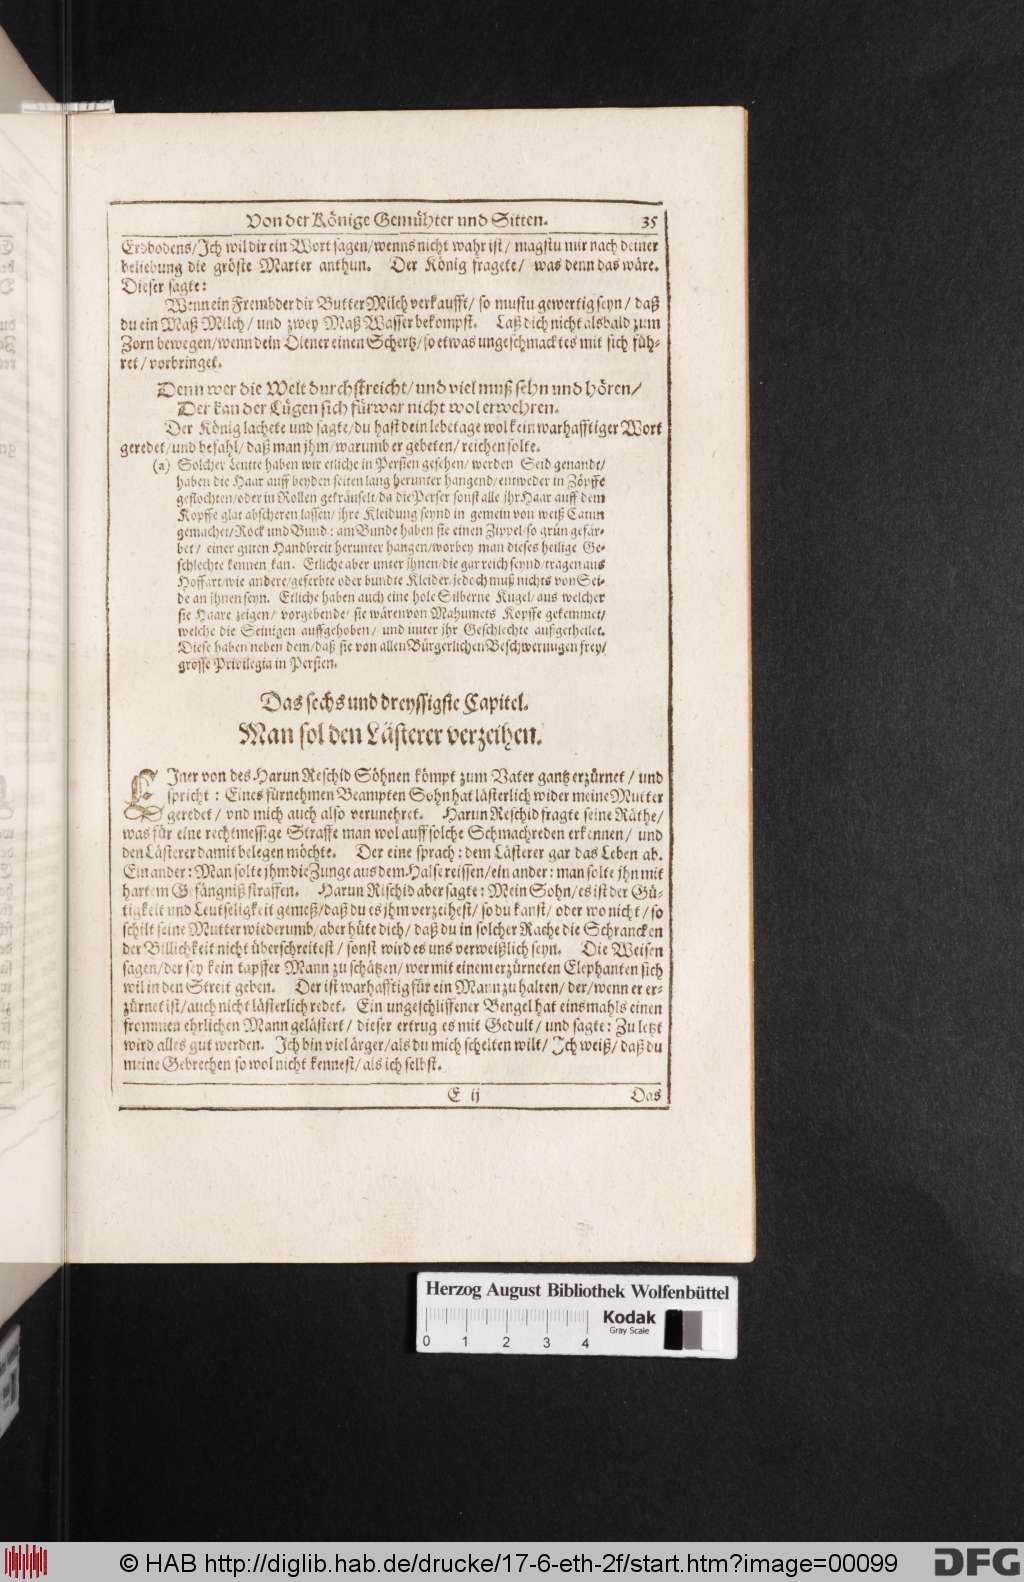 Von der Könige Gemühter und Sitten. 35
Erdbodens/Ich wil dir ein Wort sagen/wenns nicht wahr ist/ magstu mir nach deiner
beliebung die gröste Marter anthun. Der König fragete/ was denn das wäre.
Dieser sagte:
Wenn ein Frembder dir Butter Milch verkaufft/ so mustu gewertig seyn/ daß
du ein Maß Milch/ und zwey Maß Wasser bekompst. Laß dich nicht alsbald zum
Zorn bewegen/wenn dein Diener einen Schertz/so etwas ungeschmacktes mit sich füh-
ret/ vorbringet.
Denn wer die Welt durchstreicht/und viel muß sehn und hören/
Der kan der Lügen sich fürwar nicht wol erwehren.
Der König lachete und sagte/du hast dein lebetage wol kein warhafftiger Wort
geredet/und befahl/ daß man jhm/warumb er gebeten/ reichen solte.
(a) Solcher Leute haben wir etliche in Persien gesehen/ werden Seid genandt/
haben die Haar auff beyden seiten lang herunter hangend/entweder in Zöpffe
geflochten/oder in Rollen gekräuselt/da die Perser sonst alle jhr Haar auff dem
Kopffe glat abscheren lassen/ jhre Kleidung seynd in gemein von weiß Catun
gemachet/Rock und Bund: am Bunde haben sie einen Zippel/so grün gefär-
bet/ einer guten Handbreit herunter hangen/worbey man dieses heilige Ge-
schlechte kennen kan. Etliche aber unter jhnen/die gar reich seynd/tragen aus
Hoffart/wie andere/geferbte oder bundte Kleider/jedoch muß nichts von Sei-
de an jhnen seyn. Etliche haben auch eine hole Silberne Kugel/aus welcher
sie Haare zeigen/ vorgebende/ sie wären von Mahumets Kopffe gekemmet/
welche die Seinigen auffgehoben/ und unter jhr Geschlechte außgetheilet.
Diese haben neben dem/daß sie von allen Bürgerlichen Beschwerungen frey/
grosse Privilegia in Persien.
Das sechs und dreyssigste Capitel.
Man sol den Lästerer verzeihen.
EIner von des Harun Reschid Söhnen kömpt zum Vater gantz erzürnet/ und
spricht: Eines fürnehmen Beampten Sohn hat lästerlich wider meine Mutter
geredet/ und mich auch also verunehret. Harun Reschid fragte seine Räthe/
was für eine rechtmessige Straffe man wol auff solche Schmachreden erkennen/ und
den Lästerer damit belegen möchte. Der eine sprach: dem Lästerer gar das Leben ab.
Ein ander: Man solte jhm die Zunge aus dem Halse reissen/ein ander: man solte jhn mit
hartem Gefängniß straffen. Harun Rischid aber sagte: Mein Sohn/es ist der Gü-
tigkeit und Leutseligkeit gemeß/daß du es jhm verzeihest/ so du kanst/ oder wo nicht/ so
schilt seine Mutter wiederumb/aber hüte dich/ daß du in solcher Rache die Schrancken
der Billichkeit nicht überschreitest/ sonst wird es uns verweißlich seyn. Die Weisen
sagen/der sey kein tapffer Mann zu schätzen/ wer mit einem erzürneten Elephanten sich
wil in den Streit geben. Der ist warhafftig für ein Mann zu halten/ der/wenn er er-
zürnet ist/auch nicht lästerlich redet. Ein ungeschliffener Bengel hat einsmahls einen
frommen ehrlichen Mann gelästert/ dieser ertrug es mit Gedult/ und sagte: Zu letzt
wird alles gut werden. Ich bin viel ärger/als du mich schelten wilt/ Ich weiß/ daß du
meine Gebrechen so wol nicht kennest/als ich selbst.
E ij Das
Herzog August Bibliothek Wolfenbüttel
0 1 2 3 4
Kodak
Gray Scale
© HAB http://diglib.hab.de/drucke/17-6-eth-2f/start.htm?image=00099
DFG